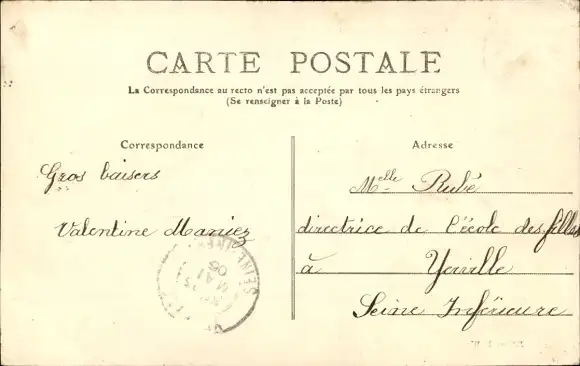 CARTE POSTALE
La Correspondance au recto n'est pas acceptée par tous les pays étrangers
(Se renseigner à la Poste)
Correspondance
Gros baisers
Valentine Maniez
SEINE
MAI
05
Adresse
Melle Rubé
directrice de l'école des filles
à Yerville
Seine Inférieure